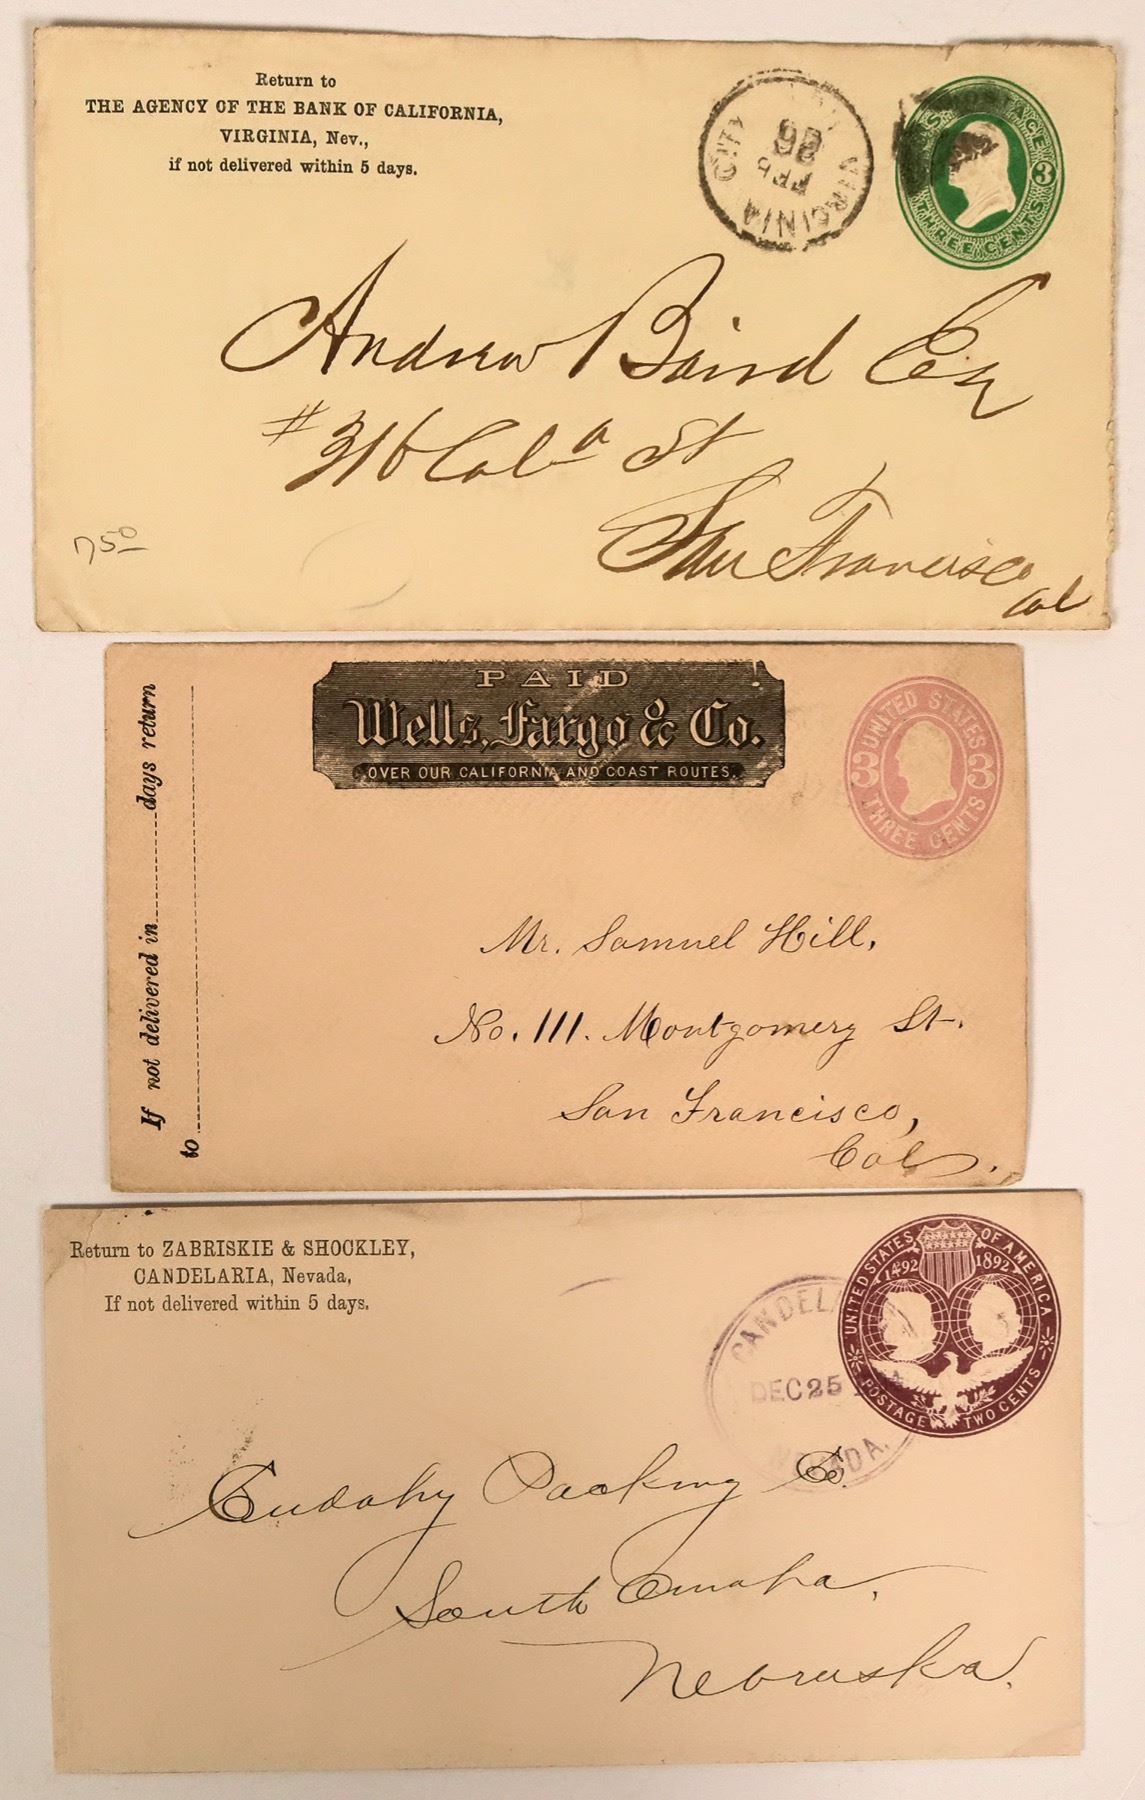 Return to
THE AGENCY OF THE BANK OF CALIFORNIA,
VIRGINIA, Nev.,
if not delivered within 5 days.
VIRGINIA CITY
FEB
26
3
THREE CENTS
Andrew Baird Esq
# 316 Cal a St
San Francisco
Cal
750
PAID
Wells, Fargo & Co.
OVER OUR CALIFORNIA AND COAST ROUTES.
If not delivered in ........ days return
to
UNITED STATES
3 3
THREE CENTS
Mr. Samuel Hill,
No. 111. Montgomery St.
San Francisco,
Cal.
Return to ZABRISKIE & SHOCKLEY,
CANDELARIA, Nevada,
If not delivered within 5 days.
DEC 25
UNITED STATES OF AMERICA
1492 1892
POSTAGE TWO CENTS
Cudahy Packing Co.
South Omaha,
Nebraska.